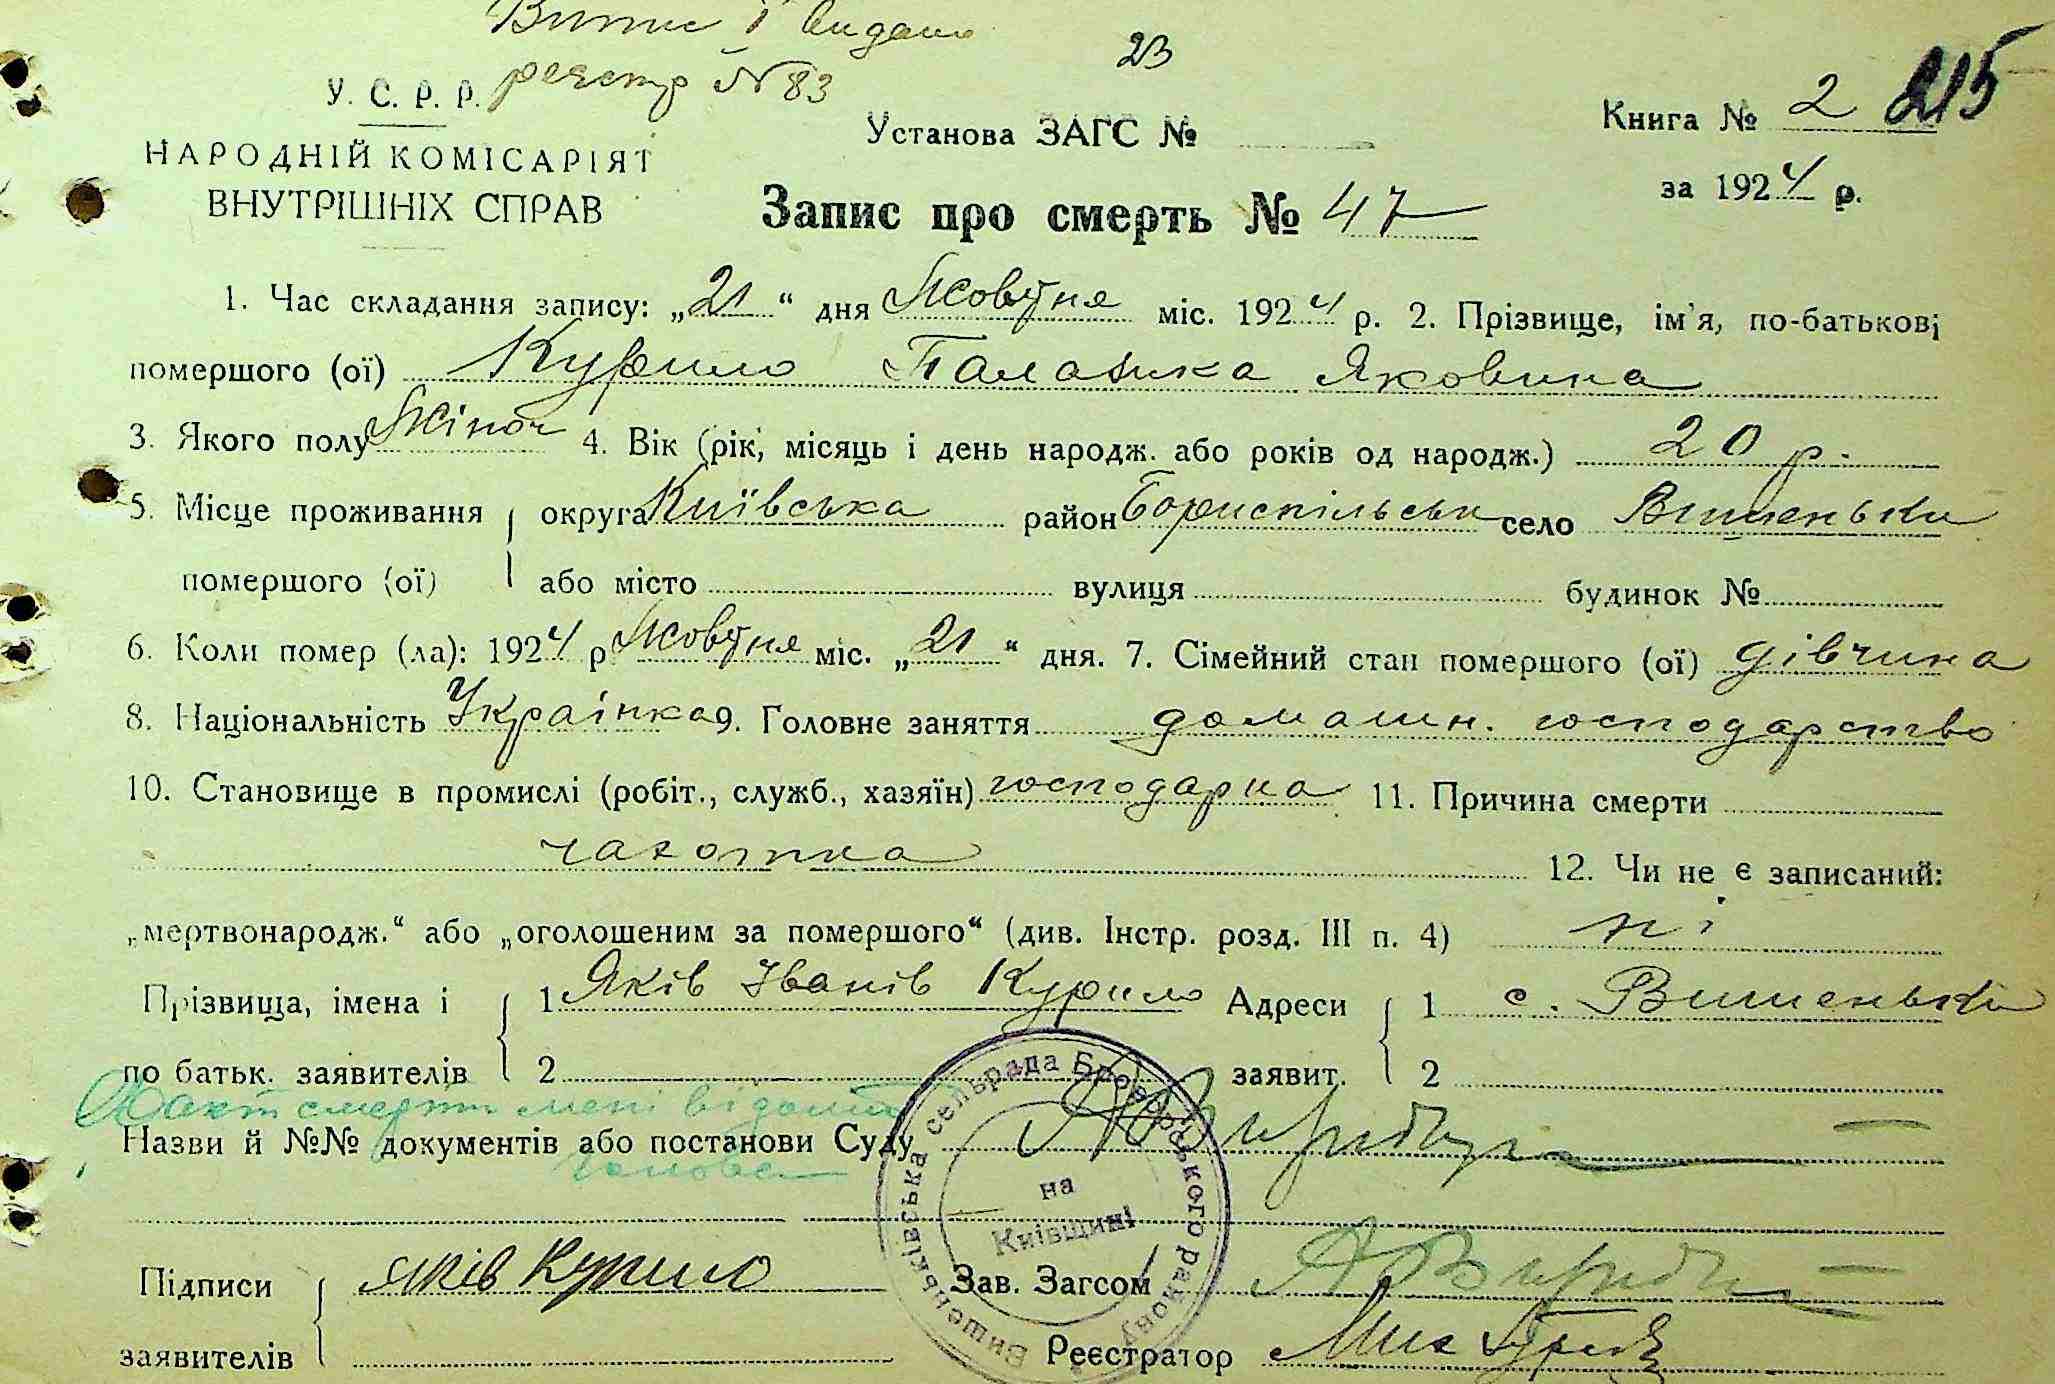 Витис і видано
реєстр № 83
23
У. С. Р. Р.
НАРОДНІЙ КОМІСАРІЯТ
ВНУТРІШНІХ СПРАВ
Установа ЗАГС №
Книга № 2 215
за 1924 р.
Запис про смерть № 47
1. Час складання запису: „21“ дня Жовтня міс. 1924 р. 2. Прізвище, ім'я, по-батькові
помершого (ої) Курило Палажка Яковина
3. Якого полу Жіноч 4. Вік (рік, місяць і день народж. або років од народж.) 20 р.
5. Місце проживання округа Київська район Бориспільськ село Вишеньки
помершого (ої) або місто вулиця будинок №
6. Коли помер (ла): 1924 р Жовтня міс. „21“ дня. 7. Сімейний стан помершого (ої) дівчина
8. Національність Українка 9. Головне заняття домашн. господарство
10. Становище в промислі (робіт., служб., хазяїн) господарка 11. Причина смерти
чахотка 12. Чи не є записаний:
„мертвонародж.“ або „оголошеним за помершого“ (див. Інстр. розд. III п. 4) ні
Прізвища, імена і 1 Яків Іванів Курило Адреси 1 с. Вишеньки
по батьк. заявителів 2 заявит. 2
Факт смерти мені відомий
Назви й №№ документів або постанови Суду
голова
Вишеньківська сельрада Броварського району
на
Київщині
Підписи Яків Курило Зав. Загсом
заявителів Реєстратор